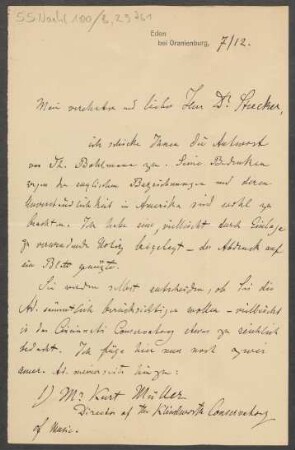 55 Nachl 100/B,
Eden
bei Oranienburg,
7/12.
Mein verehrter und lieber Herr Dr. Stecker,
ich schicke Ihnen die Antwort
von Th. Bohlmann zu. Seine Bedenken
wegen der englischen Bezeichnungen und deren
Unverständlichkeit in Amerika sind wohl zu
beachten. Ich habe eine vielleicht durch Einlage
zu verwendende Notiz beigelegt – der Abdruck auf
ein Blatt genügte.
Sie werden selbst entscheiden, ob Sie die
Ad. sämmtlich berücksichtigen wollen – vielleicht
ist das Cincinnati Conservatory etwas zu reichlich
bedacht. Ich füge hier nun noch zwei
amer. Ad. meinerseits hinzu:
1) Mr Kurt Müller
Director of the Klindworth Conservatory
of Music.